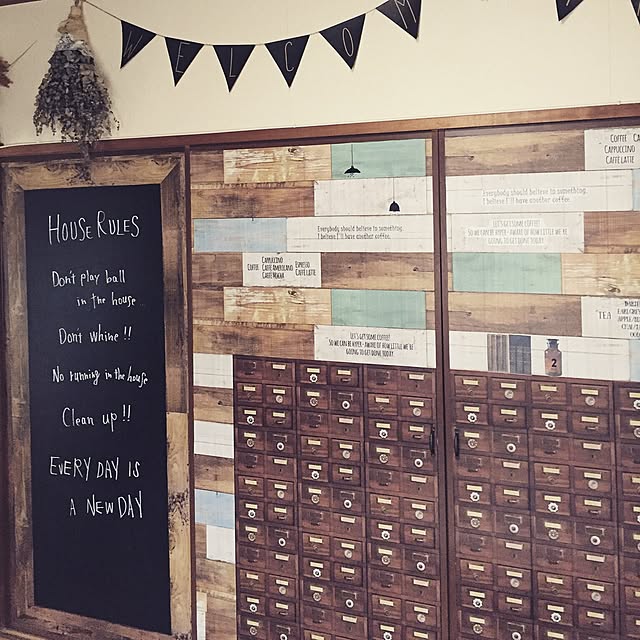 WELCOM
HOUSE RULES
Don't play ball
in the house...
Don't whine!!
No running in the house
Clean up!!
EVERY DAY IS
A NEW DAY
Everybody should believe in something.
I believe I'll have another coffee.
COFFEE
CAPPUCCINO
CAFFÈ AMERICANO
CAFFÈ MOCHA
ESPRESSO
CAFFÈ LATTE
LET'S GET SOME COFFEE!
SO WE CAN BE HYPER-AWARE OF HOW LITTLE WE'RE
GOING TO GET DONE TODAY.
COFFEE
CAPPUCCINO
CAFFÈ LATTE
Everybody should believe in something.
I believe I'll have another coffee.
LET'S GET SOME COFFEE!
SO WE CAN BE HYPER-AWARE OF HOW LITTLE WE'RE
GOING TO GET DONE TODAY.
TEA
2